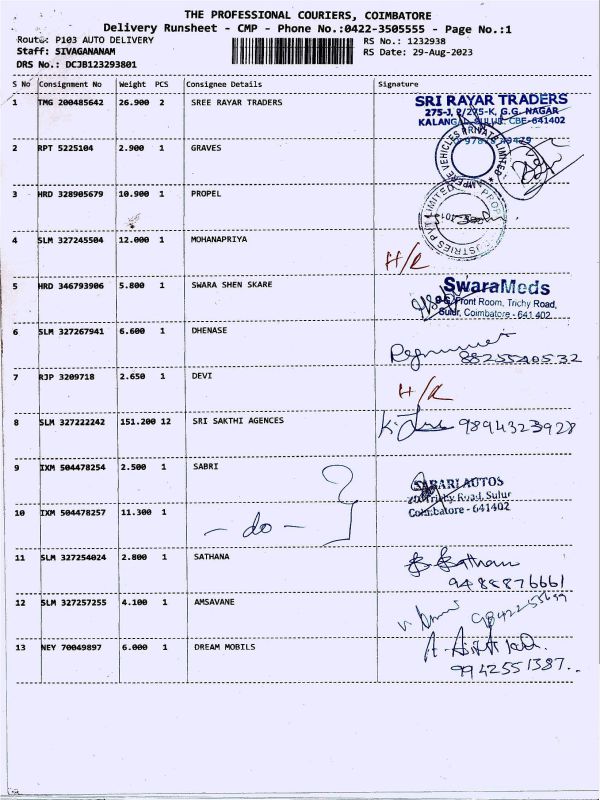 THE PROFESSIONAL COURIERS, COIMBATORE
Delivery Runsheet - CMP - Phone No.:0422-3505555 - Page No.:1
Route: P103 AUTO DELIVERY RS No.: 1232938
Staff: SIVAGANANAM RS Date: 29-Aug-2023
DRS No.: DCJB123293801
S No Consignment No Weight PCS Consignee Details Signature
1 TMG 200485642 26.900 2 SREE RAYAR TRADERS
SRI RAYAR TRADERS
275-J, 2/275-K, G.G. NAGAR
KALANGAL, SULUR, CBE-641402
2 RPT 5225104 2.900 1 GRAVES
VEHICLES PRIVATE LIMITED
3 HRD 328905679 10.900 1 PROPEL
PROPEL INDUSTRIES PVT LIMITED
4 SLM 327245504 12.000 1 MOHANAPRIYA H/R
5 HRD 346793906 5.800 1 SWARA SHEN SKARE
SwaraMeds
Front Room, Trichy Road,
Sulur, Coimbatore - 641 402.
6 SLM 327267941 6.600 1 DHENASE
7 RJP 3209718 2.650 1 DEVI H/R
8 SLM 327222242 151.200 12 SRI SAKTHI AGENCES 9894323928
9 IXM 504478254 2.500 1 SABRI
SABARI AUTOS
Trichy Road, Sulur
Coimbatore - 641402
10 IXM 504478257 11.300 1 - do -
11 SLM 327254024 2.800 1 SATHANA
9488876661
12 SLM 327257255 4.100 1 AMSAVANE
13 NEY 70049897 6.000 1 DREAM MOBILS
9942551387..